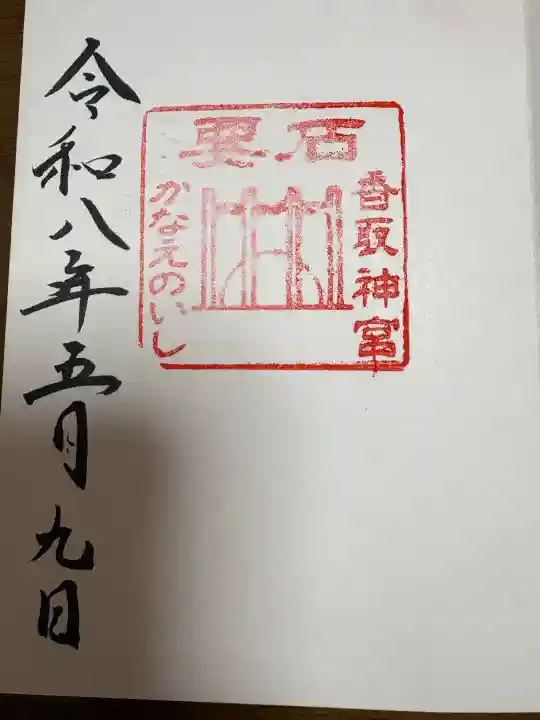 香取神宮
要石
かなえのいし
令和八年五月九日